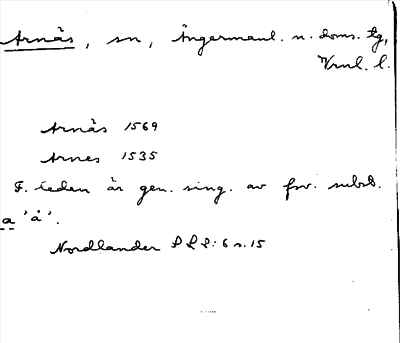 Arnäs, sn, Ångermanl. n. doms. tg,
Vrnl. l.
Arnäs 1569
Arnes 1535
F. leden är gen. sing. av fsv. subst.
a 'å'.
Nordlander 6 s. 15